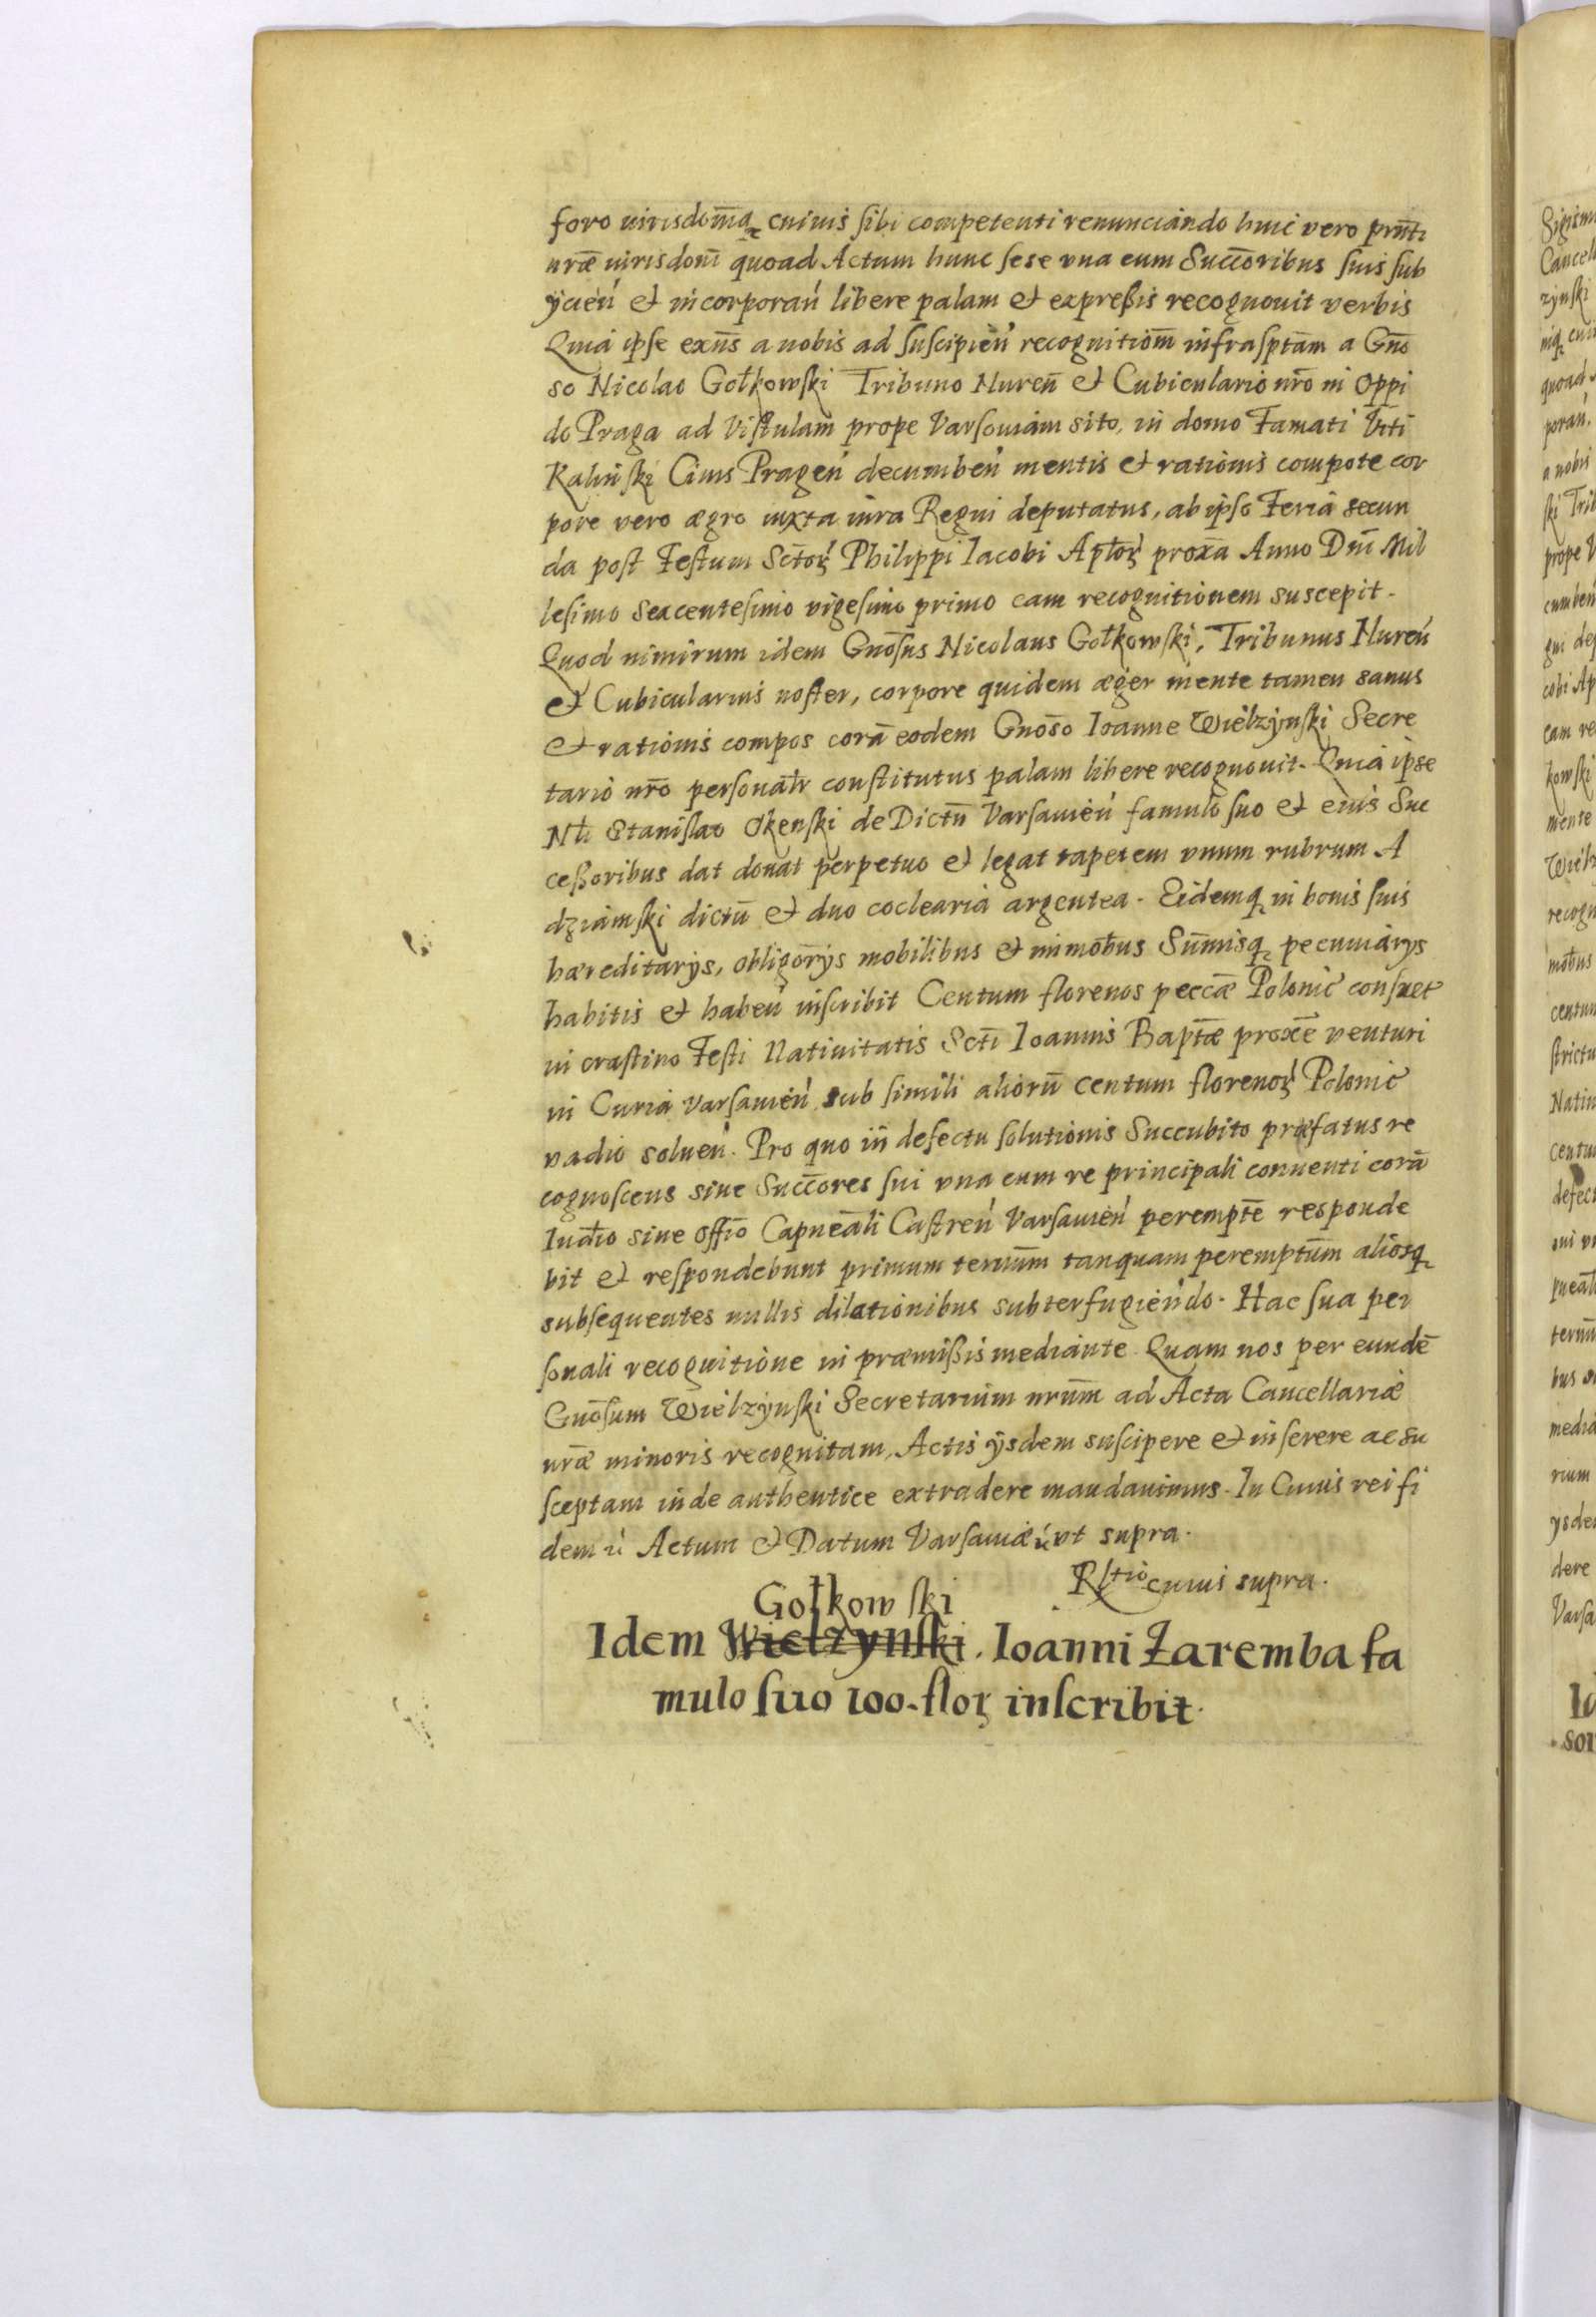 foro iurisdom̄q cuivis sibi competenti renunciando huic vero prn̄ti
nr̄æ iurisdom̄ quoad Actum hunc sese vna cum Succ̄oribus suis sub
ÿcień et incorporań libere palam et expreßis recognouit verbis
Quia ipse exn̄s a nobis ad suscipień recognitiom̄ infrasptam̄ a Gn̄o
so Nicolao Gołkowski Tribuno Nureń et Cubiculario nr̄o in Oppi
do Praga ad Vistulam prope Varsouiam sito, in domo Famati Viti
Kaliński Ciuis Prageń decumbeń mentis et rationis compote cor
pore vero ægro iuxta iura Regni deputatus, ab ipso Feria secun
da post Festum Sctoꝝ Philippi Iacobi Apl̄oꝝ prox̄a Anno Dn̄i Mil
lesimo Sexcentesimo vigesimo primo eam recognitionem suscepit.
Quod nimirum idem Gnōsus Nicolaus Gołkowski, Tribunus Nureń
et Cubicularius noster, corpore quidem æger mente tamen sanus
et rationis compos corā eodem Gnōso Ioanne Wielżynski Secre
tario nr̄o personalr̄ constitutus palam libere recognouit. Quia ipse
Nłi Stanislao Okenski de Dictū Varsauień famulo suo et eius Suc
ceßoribus dat donat perpetuo et legat tapetem vnum rubrum A
dziamski dictū et duo coclearia argentea. Eidemq in bonis suis
hæreditarÿs, obligōrÿs mobilibus et immob̄us Sum̄isq pecuniarÿs
habitis et habeń inscribit Centum florenos pecc̄æ Polonic̄ consuet
in crastino Festi Natiuitatis Sct̄i Ioannis Bapt̄æ prox̄e venturi
in Curia Varsauień sub simili aliorū centum florenoꝝ Polonic̄
vadio soluen. Pro quo in defectu solutionis Succubito præfatus re
cognoscens siue Succ̄ores sui vna cum re principali conuenti corā
Iud̄io siue Offīo Capneāli Castreń Varsauień perempt̄e responde
bit et respondebunt primum termum̄ tanquam perempt̄um aliosq
subsequentes nullis dilationibus subterfugiendo. Hac sua per
sonali recognitione in præmißis mediante. Quam nos per eundē
Gnōsum Wielżynski Secretarium nrum̄ ad Acta Cancellariæ
nr̄æ minoris recognitam, Actis ÿsdem suscipere et inserere ac su
sceptam inde authentice extradere mandauimus. In Cuius rei fi
dem ń Actum et Datum Varsauiæ ń vt supra.
Rltio cuius supra.
Gołkowski
Idem Wielzynski. Ioanni Zaremba fa
mulo suo 100. floꝝ inscribit.